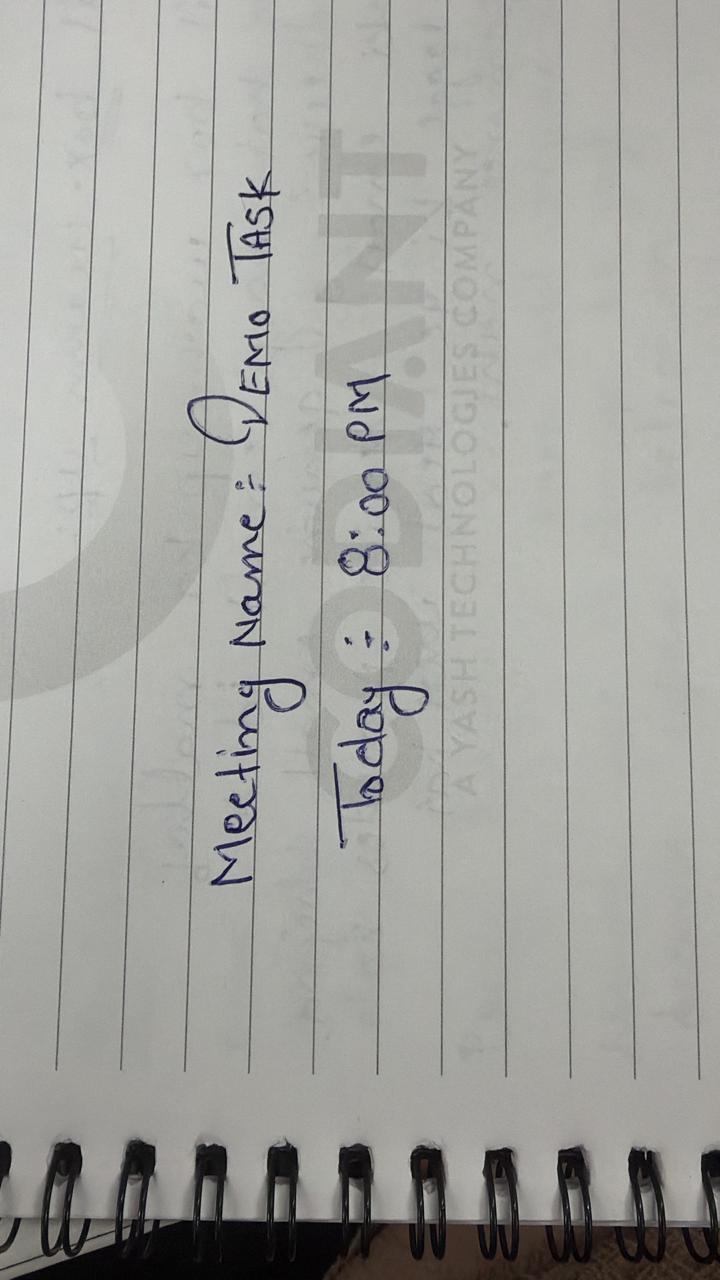 Meeting Name:- DEMO TASK
Today :- 8:00 PM
CODIANT
A YASH TECHNOLOGIES COMPANY